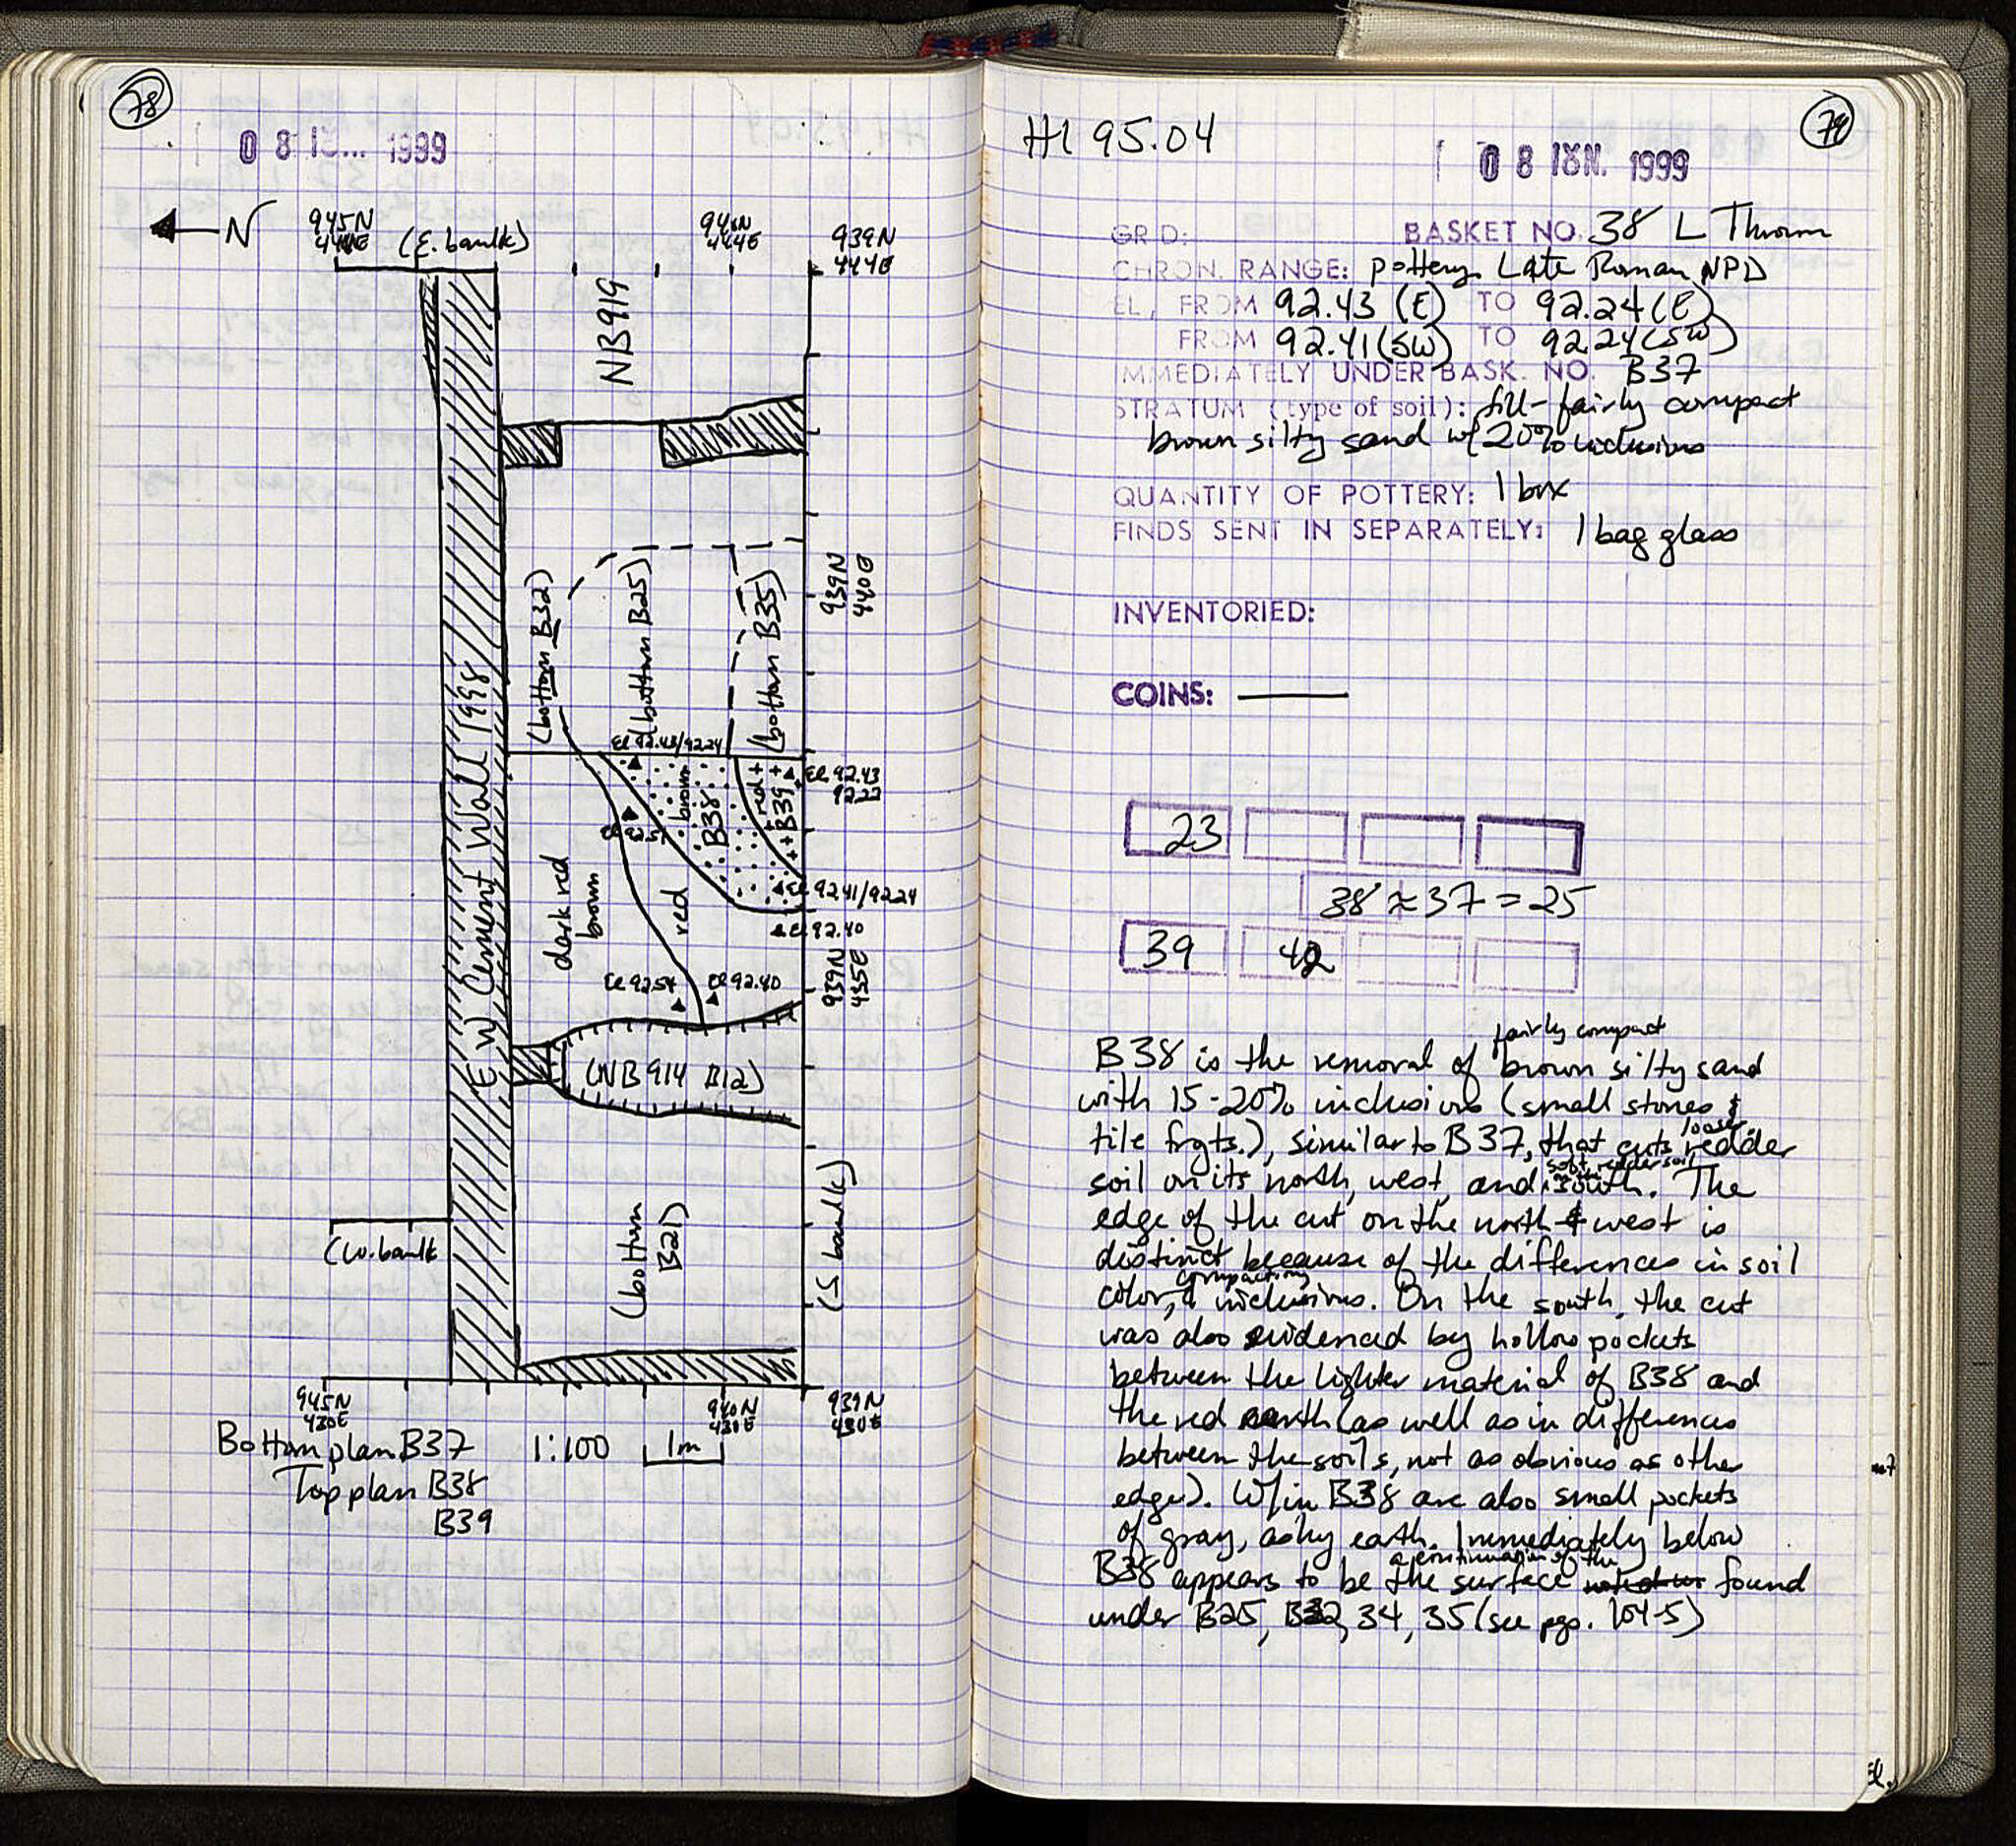 78
08 1999
N
945N
444E
(E. baulk)
940N
444E
939N
444E
NB919
E-W Cement Wall 1998
(bottom B32)
(bottom B25)
(bottom B35)
939N
440E
El 92.43/92.24
brown
B38
red
B39
El 92.43
92.22
dark red
brown
red
El 92.41/92.24
El 92.40
El 92.54
El 92.40
939N
435E
(NB914 B12)
(W. baulk
(bottom
B21)
(S baulk)
945N
430E
940N
430E
939N
430E
Bottom plan B37 1:100 1m
Top plan B38
B39
79
H1 95.04
08 IUN. 1999
GRID: BASKET NO. 38 L Thorom
CHRON. RANGE: pottery Late Roman NPD
EL, FROM 92.43 (E) TO 92.24 (E)
FROM 92.41 (SW) TO 92.24 (SW)
IMMEDIATELY UNDER BASK. NO. B37
STRATUM (type of soil): fill - fairly compact
brown silty sand w/ 20% inclusions
QUANTITY OF POTTERY: 1 box
FINDS SENT IN SEPARATELY: 1 bag glass
INVENTORIED:
COINS: —
23
38 ≈ 37 = 25
39 42
B38 is the removal of fairly compact brown silty sand
with 15-20% inclusions (small stones &
tile frgts.), similar to B37, that cuts looser redder
soil on its north, west, and soft, redder soil south. The
edge of the cut on the north & west is
distinct because of the differences in soil
color, compaction, & inclusions. On the south, the cut
was also evidenced by hollow pockets
between the lighter material of B38 and
the red earth (as well as in differences
between the soils, not as obvious as other
edge). W/in B38 are also small pockets
of gray, ashy earth. Immediately below
B38 appears to be a continuation of the the surface found
under B25, B32, 34, 35 (see pgs. 104-5)